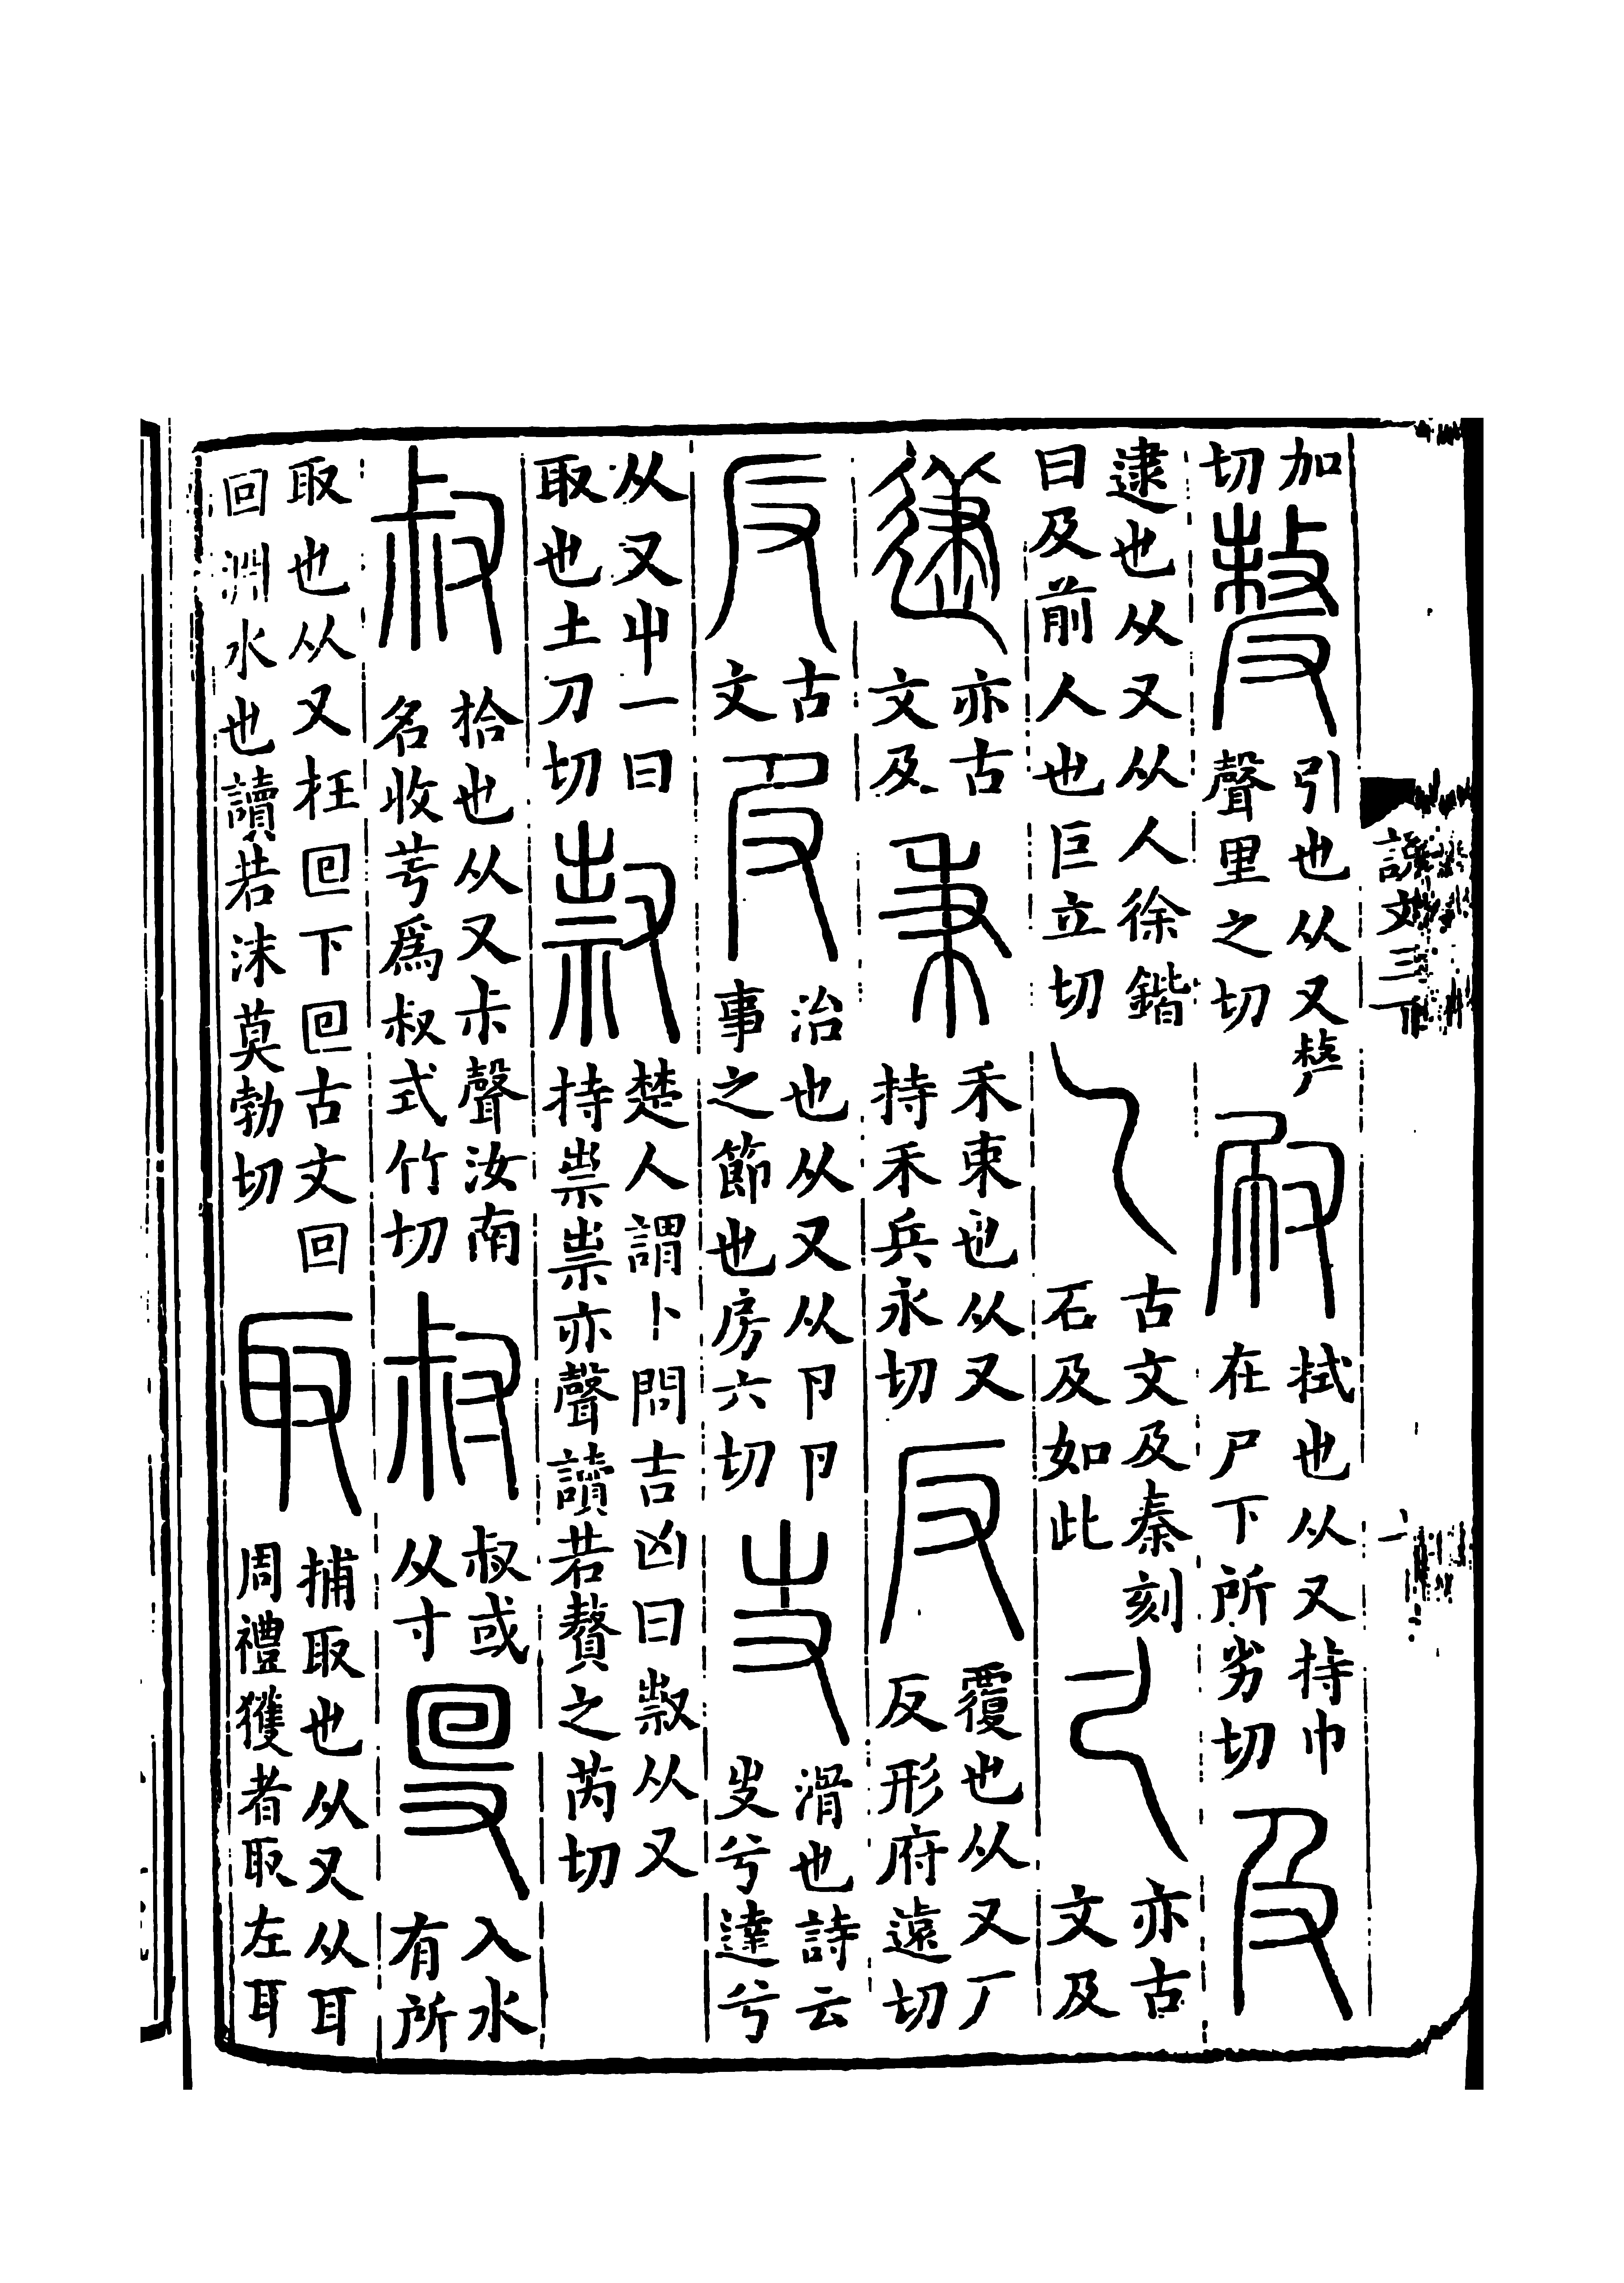 說文三下
加切𠭰引也从又𠩺聲里之切㕞拭也从又持巾在尸下所劣切及
逮也从又从人徐鍇曰及前人也巨立切乁古文及秦刻石及如此弓亦古文及
𨖹亦古文及秉禾束也从又持禾兵永切反覆也从又厂反形府遠切
𠬡古文𠬝治也从又从卪卪事之節也房六切𠬢滑也詩云𠬢兮達兮
从又屮一曰取也土刀切𠭥楚人謂卜問吉凶曰𠭥从又持祟祟亦聲讀若贅之芮切
叔拾也从又尗聲汝南名收芌爲叔式竹切村叔或从寸𠬸入水有所
取也从又在囘下囘古文回回淵水也讀若沬莫勃切取捕取也从又从耳周禮獲者取左耳